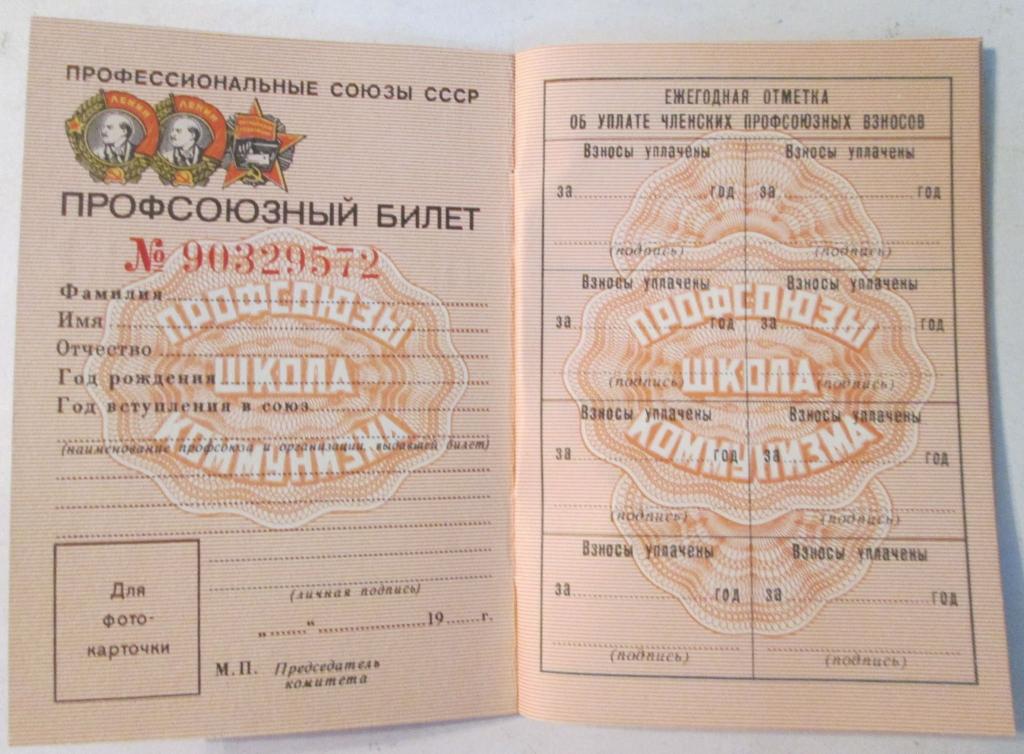 ПРОФЕССИОНАЛЬНЫЕ СОЮЗЫ СССР
ЛЕНИН ЛЕНИН
ПРОФСОЮЗНЫЙ БИЛЕТ
№ 90329572
Фамилия
Имя
Отчество
Год рождения
Год вступления в союз
(наименование профсоюза и организации, выдавшей билет)
ПРОФСОЮЗЫ
ШКОЛА
КОММУНИЗМА
Для
фото-
карточки
(личная подпись)
„......“ 19......г.
М.П. Председатель
комитета
ЕЖЕГОДНАЯ ОТМЕТКА
ОБ УПЛАТЕ ЧЛЕНСКИХ ПРОФСОЮЗНЫХ ВЗНОСОВ
Взносы уплачены Взносы уплачены
за год за год
(подпись) (подпись)
Взносы уплачены Взносы уплачены
за год за год
(подпись) (подпись)
Взносы уплачены Взносы уплачены
за год за год
(подпись) (подпись)
Взносы уплачены Взносы уплачены
за год за год
(подпись) (подпись)
ПРОФСОЮЗЫ
ШКОЛА
КОММУНИЗМА